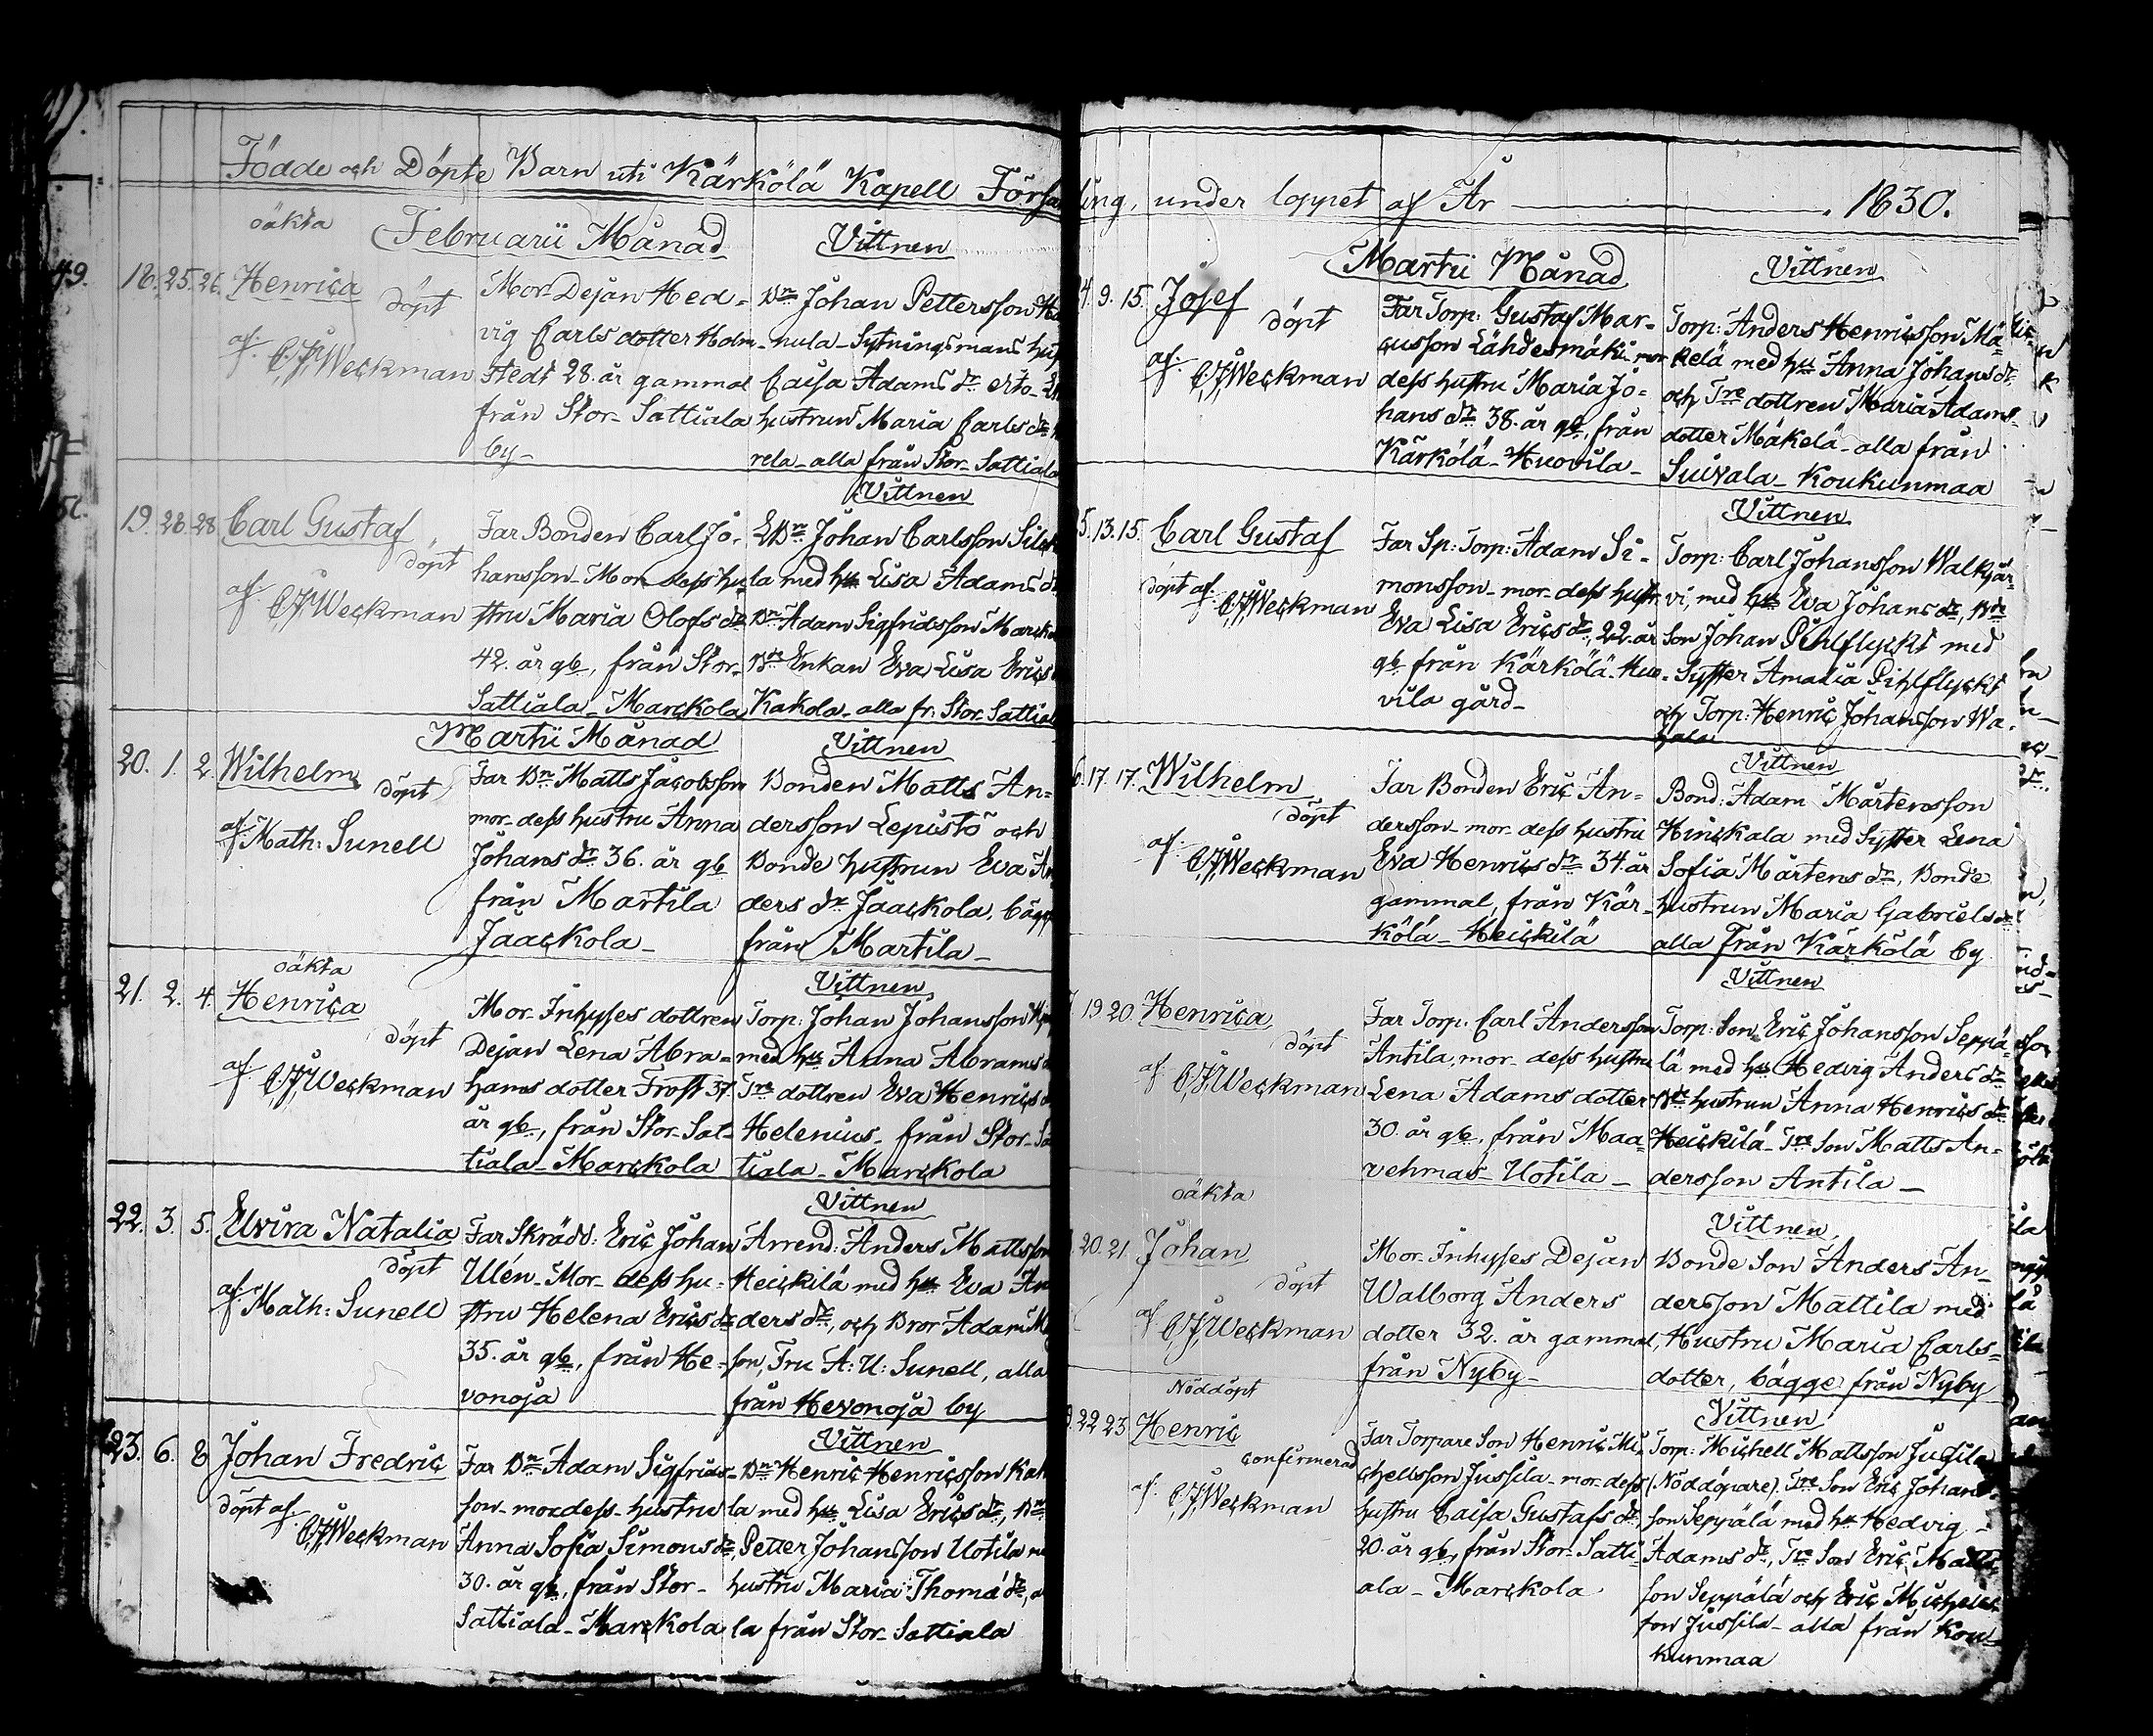 Födde och Döpte Barn uti Kärkölä Kapell Försa
oäkta
Februarii Månad
Vittnen
18. 25. 26. Henrica döpt
af. C.J. Weckman
Mor Dejan Hed-
vig Carls dotter Holm-
stedt 28. år gammal
från Stor Sattiala
by
Bn Johan Pettersson
nula Sytningsmans
Caisa Adams dr
hustrun Maria Carls dr
rela alla från Stor Sattiala
Vittnen
19. 26. 28. Carl Gustaf döpt
af. C.J. Weckman
Far Bonden Carl Jo-
hansson Mor dess hu-
stru Maria Olofs dr
42. år gl, från Stor-
Sattiala Marckola
EBn Johan Carlsson
la med hu Lisa Adams dr
Bn Adam Sigfridsson
Bn Enkan Eva Lisa Erics
Kakola alla fr: Stor Sattiala
Martii Månad
Vittnen
20. 1. 2. Wilhelm döpt
af Math: Sunell
Far Bn Matts Jacobsson
mor dess hustru Anna
Johans dr 36. år gl
från Martila
Jaackola
Bonden Matts An=
dersson Lepistö och
Bonde hustrun Eva
ders dr Jaackola,
från Martila
oäkta
Vittnen
21. 2. 4. Henrica döpt
af. C.J. Weckman
Mor Inhyses dottren
Dejan Lena Abra=
hams dotter Frost 37.
år gl, från Stor Sat-
tiala Marckola
Torp: Johan Johansson
med hu Anna Abrams
Tre dottren Eva Henrics
Helenius från Stor
tiala Marckola
Vittnen
22. 3. 5. Elvira Natalia döpt
af. Math: Sunell
Far Skrädd: Eric Johan
Ulén Mor dess hu-
stru Helena Erics dr
35. år gl, från He-
vonoja
Arrend: Anders Mattsson
Heickilä med hu Eva
ders dr, och Bror Adam
son, Fru A: U: Sunell, alla
från Hevonoja by
Vittnen
23. 6. 8 Johan Fredric
döpt af. C.J. Weckman
Far Bn Adam Sigfrids-
son mor dess hustru
Anna Sofia Simons dr,
30. år gl, från Stor
Sattiala Marckola
Bn Henric Henricsson
la med hu Lisa Erics dr, Bn
Petter Johansson Uotila
hustru Maria Thomæ dr,
la från Stor Sattiala
ling, under loppet af År 1830.
Martii Månad
Vittnen
4. 9. 15. Josef döpt
af. C.J. Weckman
Far Torp: Gustaf Mar-
cusson Lähdesmäki mor
dess hustru Maria Jo-
hans dr 38. år gl, från
Kärkölä Huovila
Torp: Anders Henricsson Mä-
kelä med hu Anna Johans dr
och Tre dottren Maria Adams
dotter Mäkelä alla från
Suivala Koukunmaa
Vittnen
5. 13. 15. Carl Gustaf
döpt af. C.J. Weckman
Far Sp: Torp: Adam Si-
monsson mor dess hustr.
Eva Lisa Erics dr, 22. år
gl från Kärkölä Huo-
vila gård
Torp: Carl Johansson Walkjär-
vi, med hu Eva Johans dr, Bde
son Johan Pihlflyckt med
Syster Amalia Pihlflyckt
och Torp: Henric Johansson Wa-
Vittnen
6. 17. 17. Wilhelm döpt
af. C.J. Weckman
Far Bonden Eric An-
dersson mor dess hustru
Eva Henrics dr 34. år
gammal, från Kär-
kölä Heickilä
Bond: Adam Mårtensson
Hinckala med Syster Lena
Sofia Mårtens dr, Bonde
hustrun Maria Gabriels dr
alla från Kärkölä by
Vittnen
19 20. Henrica döpt
af C.J. Weckman
Far Torp: Carl Andersson
Antila, mor dess hustru
Lena Adams dotter
30. år gl, från Maa-
vehmas Uotila
Torp: Son Eric Johansson Seppä-
lä med hu Hedvig Anders dr
Bde hustrun Anna Henrics dr
Heickilä Tre Son Matts An-
dersson Antila
oäkta
Vittnen
20. 21. Johan döpt
af C.J. Weckman
Mor Inhyses Dejan
Walborg Anders
dotter 32. år gammal,
från Nyby
Bonde Son Anders An-
dersson Mattila med
Hustru Maria Carls-
dotter, bägge från Nyby
Nöddöpt
Vittnen
22 23. Henric confirmerad
af. C.J. Weckman
Far Torpare Son Henric Mi-
chellsson Jussila mor dess
hustru Caisa Gustafs dr
20. år gl, från Stor Satti-
ala Marckola
Torp: Michell Mattsson Jussila
(Nöddöpare). Tre Son Eric Johans-
son Seppälä med hu Hedvig
Adams dr, Tre Son Eric Matts-
son Seppälä och Eric Michells-
son Jussila alla från Kou-
kunmaa